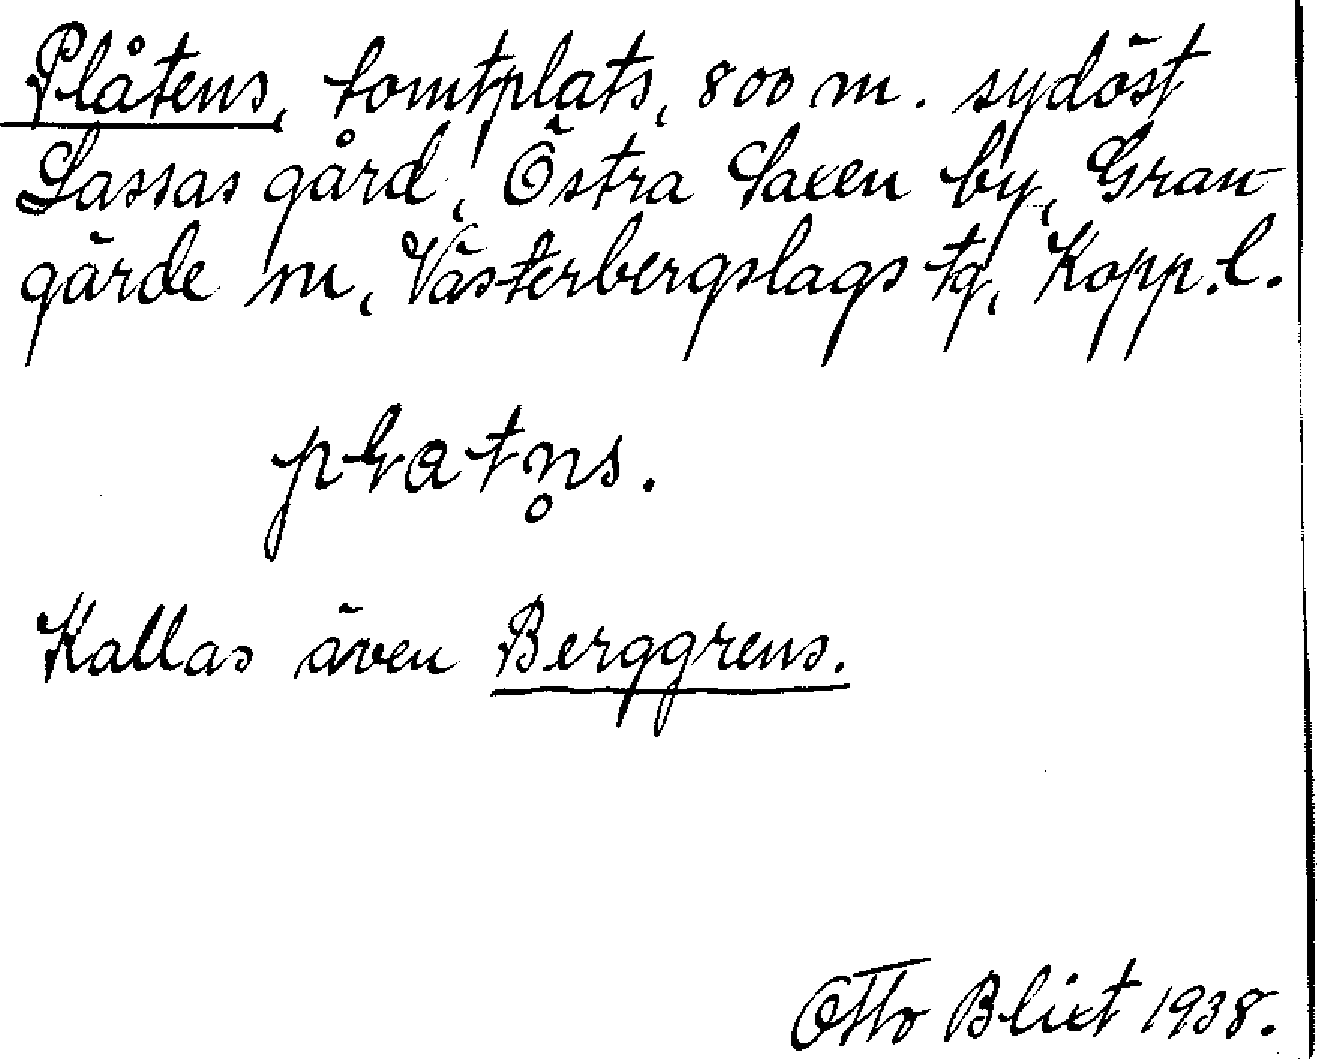 Plåtens, tomtplats, 800 m. sydöst
Lassas gård, Östra Saxen by, Gran-
gärde sn, Västerbergslags tg, Kopp.l.
platn̥s.
Kallas även Berggrens.
Otto Blixt 1938.